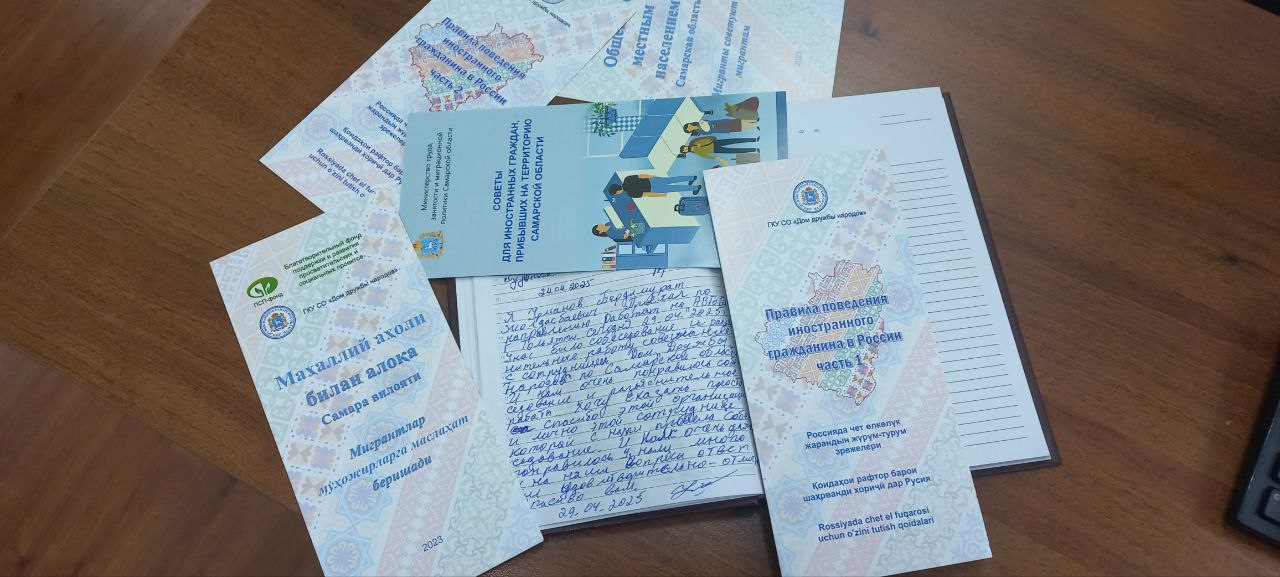 дружбы народов»
Правила поведения
иностранного
гражданина в России
часть 2.
Россияда чет
жарандын
эрежелери
Қоидаҳои рафтор барои
шаҳрванди хориҷӣ дар Рус
Rossiyada chet el fuqaros
uchun o'zini tutish
местным
населением
Самарская область
Мигранты советуют
мигрантам
2023
Министерство труда,
занятости и миграционной
политики Самарской области
СОВЕТЫ
ДЛЯ ИНОСТРАННЫХ ГРАЖДАН,
ПРИБЫВШИХ НА ТЕРРИТОРИЮ
САМАРСКОЙ ОБЛАСТИ
Благотворительный фонд
поддержки и развития
просветительских и
социальных проектов
ПСП-фонд
ГКУ СО «Дом дружбы народов»
Махаллий аҳоли
билан алоқа
Самара вилояти
Мигрантлар
муҳожирларга маслаҳат
беришади
2023
29.04.2025
Я Урманов Бердимурат
по
направлению работать на
г. Тольятти сегодня 29.04.2025
было собеседование и
работу
с сотрудницей Дом Дружбы
Народов по Самарской
И нам очень понравилось
и разъяснительная
работа. Хочу сказать просто
спасибо этой организации
и лично этой сотруднице
которая с нами провела
седование. И нам очень
понравилось и нам много
на наши вопросы
удовлетворительно
вам.
29.04.2025
ГКУ СО «Дом дружбы народов»
Правила поведения
иностранного
гражданина в России
часть 1.
Россияда чет өлкөлүк
жарандын жүрүм-турум
эрежелери
Қоидаҳои рафтор барои
шаҳрванди хориҷӣ дар Русия
Rossiyada chet el fuqarosi
uchun o'zini tutish qoidalari